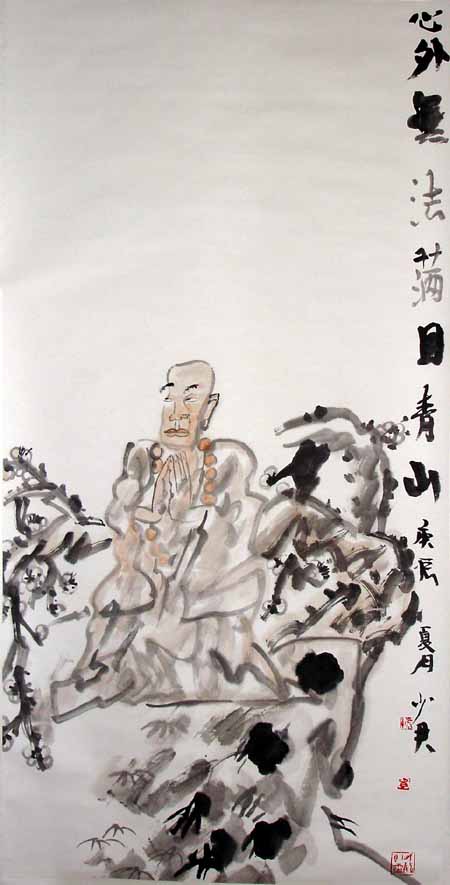 心外無法滿目青山 庚辰夏月少君